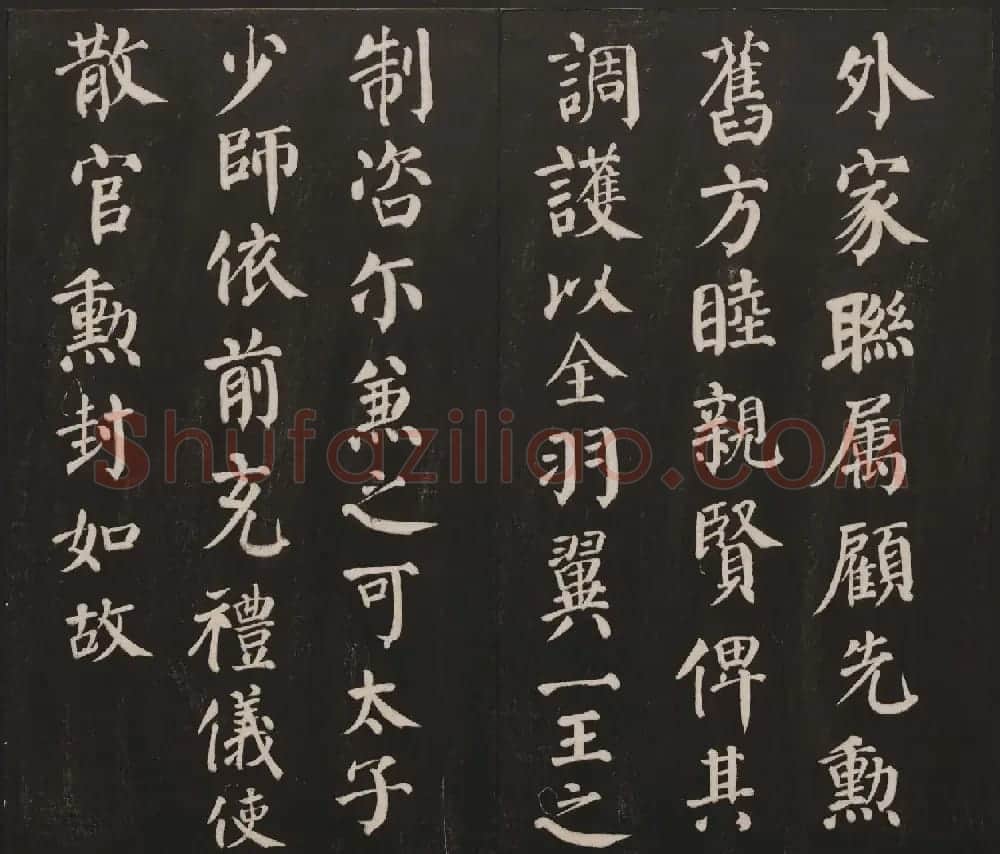 外家聯属顧先勲
舊方睦親賢俾其
調護以全羽翼一王之
制咨尓兼之可太子
少師依前充禮儀使
散官勲封如故
Shufaziliao.com